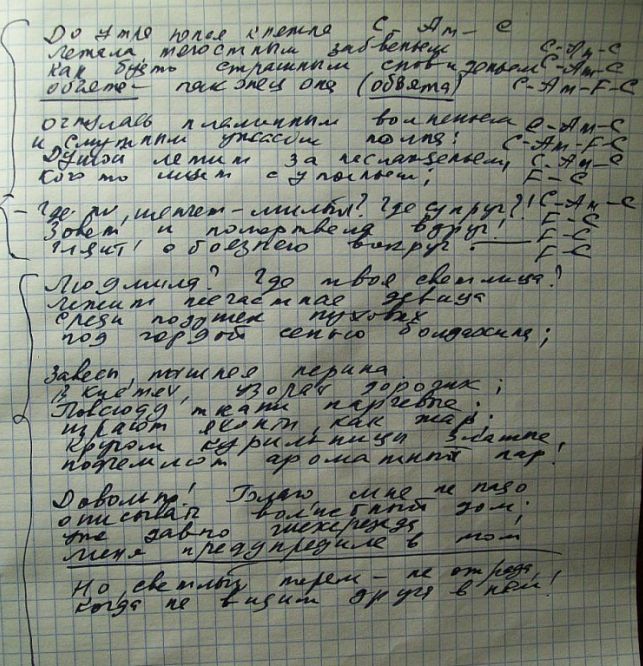 До утра юная княжна C - Am - C
лежала тягостным забвеньем C-Am-C
как будто страшным сновиденьем C-Am-C
объята - наконец она (объята) C-Am-F-C
очнулась пламенным волненьем C-Am-C
и смутным ужасом полна; C-Am-F-C
Душой летит за наслажденьем, C-Am-C
кого то ищет с упоеньем; F-C
- Где ты, шепчет - милый? Где супруг?! C-Am-C
Зовет и помертвела вдруг! F-C
глядит с боязнею вокруг. F-C
F-C
Людмила? Где твоя светлица?
лежит несчастная девица
среди подушек пуховых
под гордой сенью балдахина;
Завесы, пышная перина
В кистях, узорах дорогих;
Повсюду ткани парчевые;
играют яхонты, как жар;
кругом курильницы златые
подъемлют ароматный пар!
Довольно! Благо мне не надо
описывать волшебный дом.
уже давно шехерезада
меня предупредила в том
Но, светлый терем - не отрада,
когда не видим друга в нем!